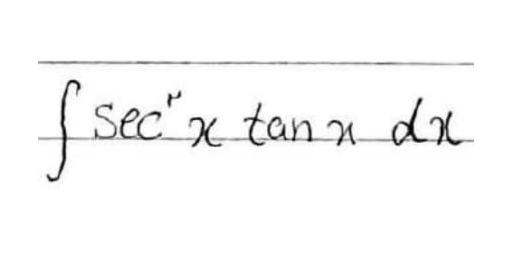 ∫ sec^r x tan x dx